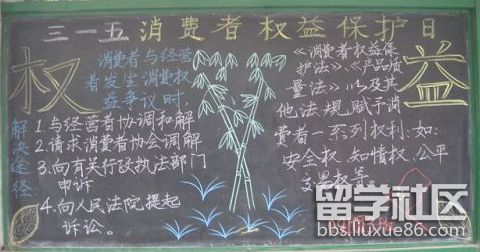 三一五消费者权益保护日
权
消费者与经营
者发生消费权
益争议时.
解决途径:
1.与经营者协调和解
2.请求消费者协会调解
3.向有关行政执法部门
申诉
4.向人民法院提起
诉讼。
《消费者权益保
护法》、《产品质
量法》以及其
他法规赋予消
费者一系列权利:如:
安全权、知情权、公平
交易权等.
益
留学社区
bbs.liuxue86.com